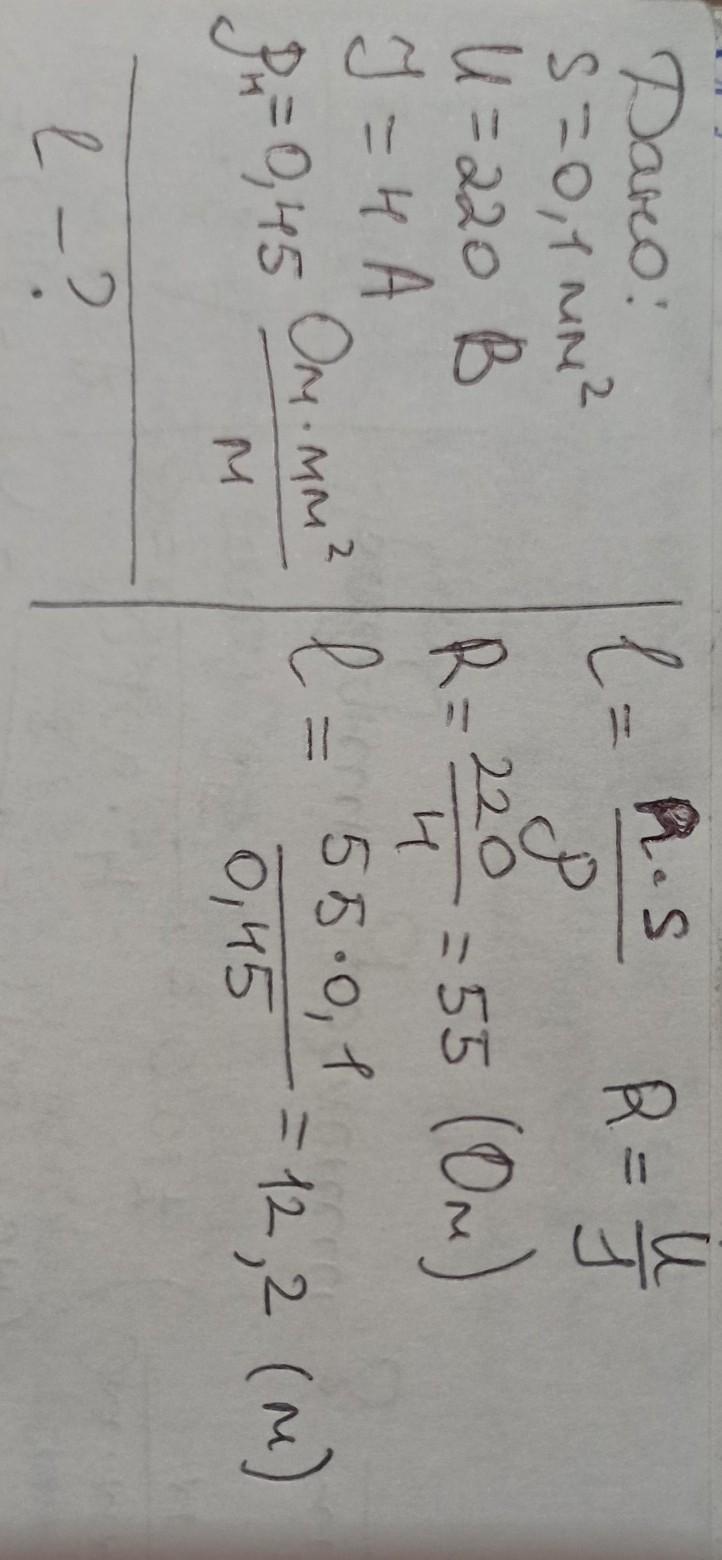 Дано:
S = 0,1 мм²
U = 220 В
J = 4 А
ρн = 0,45 Ом·мм²/м
l - ?
l = R·S/ρ R = U/J
R = 220/4 = 55 (Ом)
l = 55·0,1/0,45 = 12,2 (м)